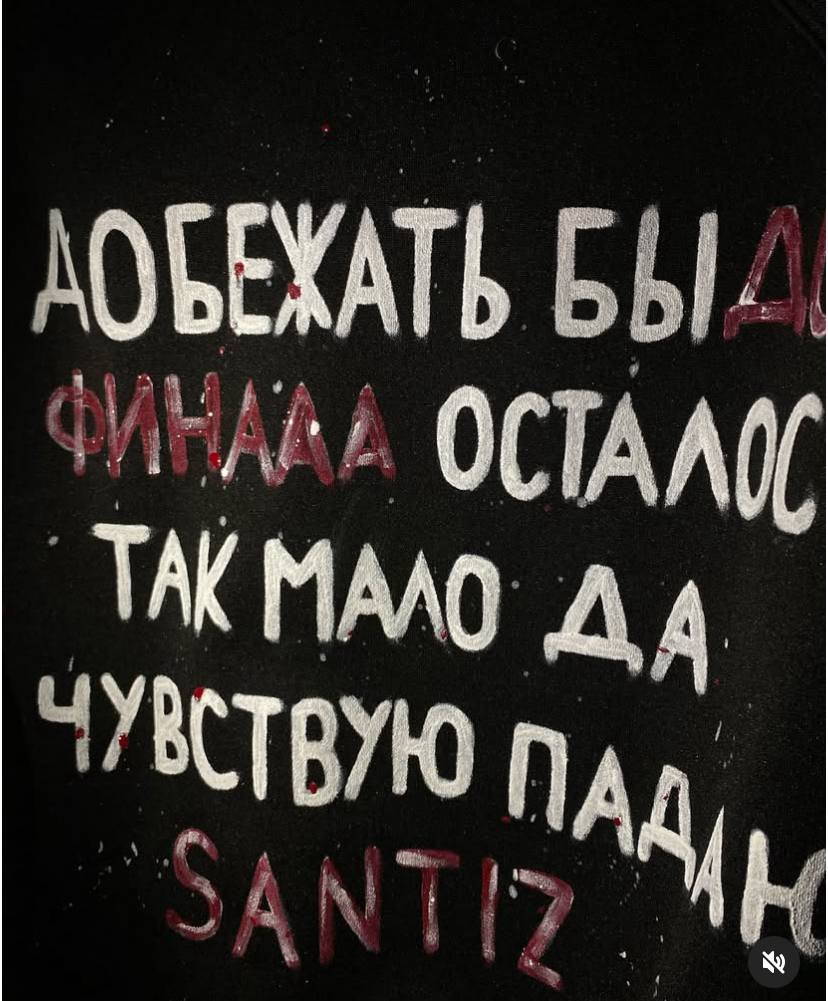 ДОБЕЖАТЬ БЫ ДО
ФИНАЛА ОСТАЛОС
ТАК МАЛО ДА
ЧУВСТВУЮ ПАДАЮ
SANTIZ